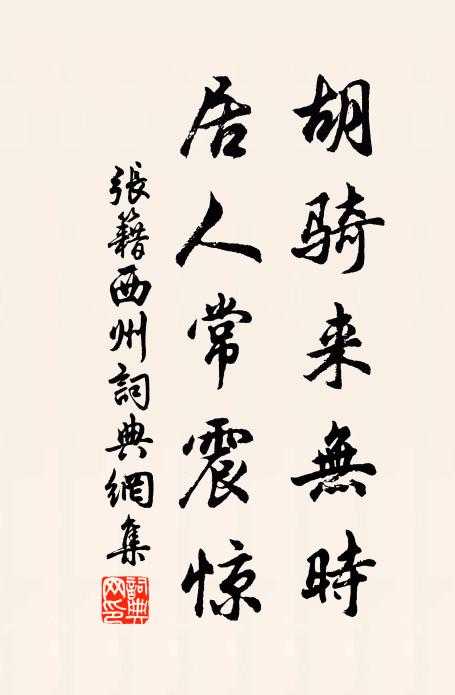 胡骑来無時
居人常震惊
張籍西州詞典網集
詞典网印